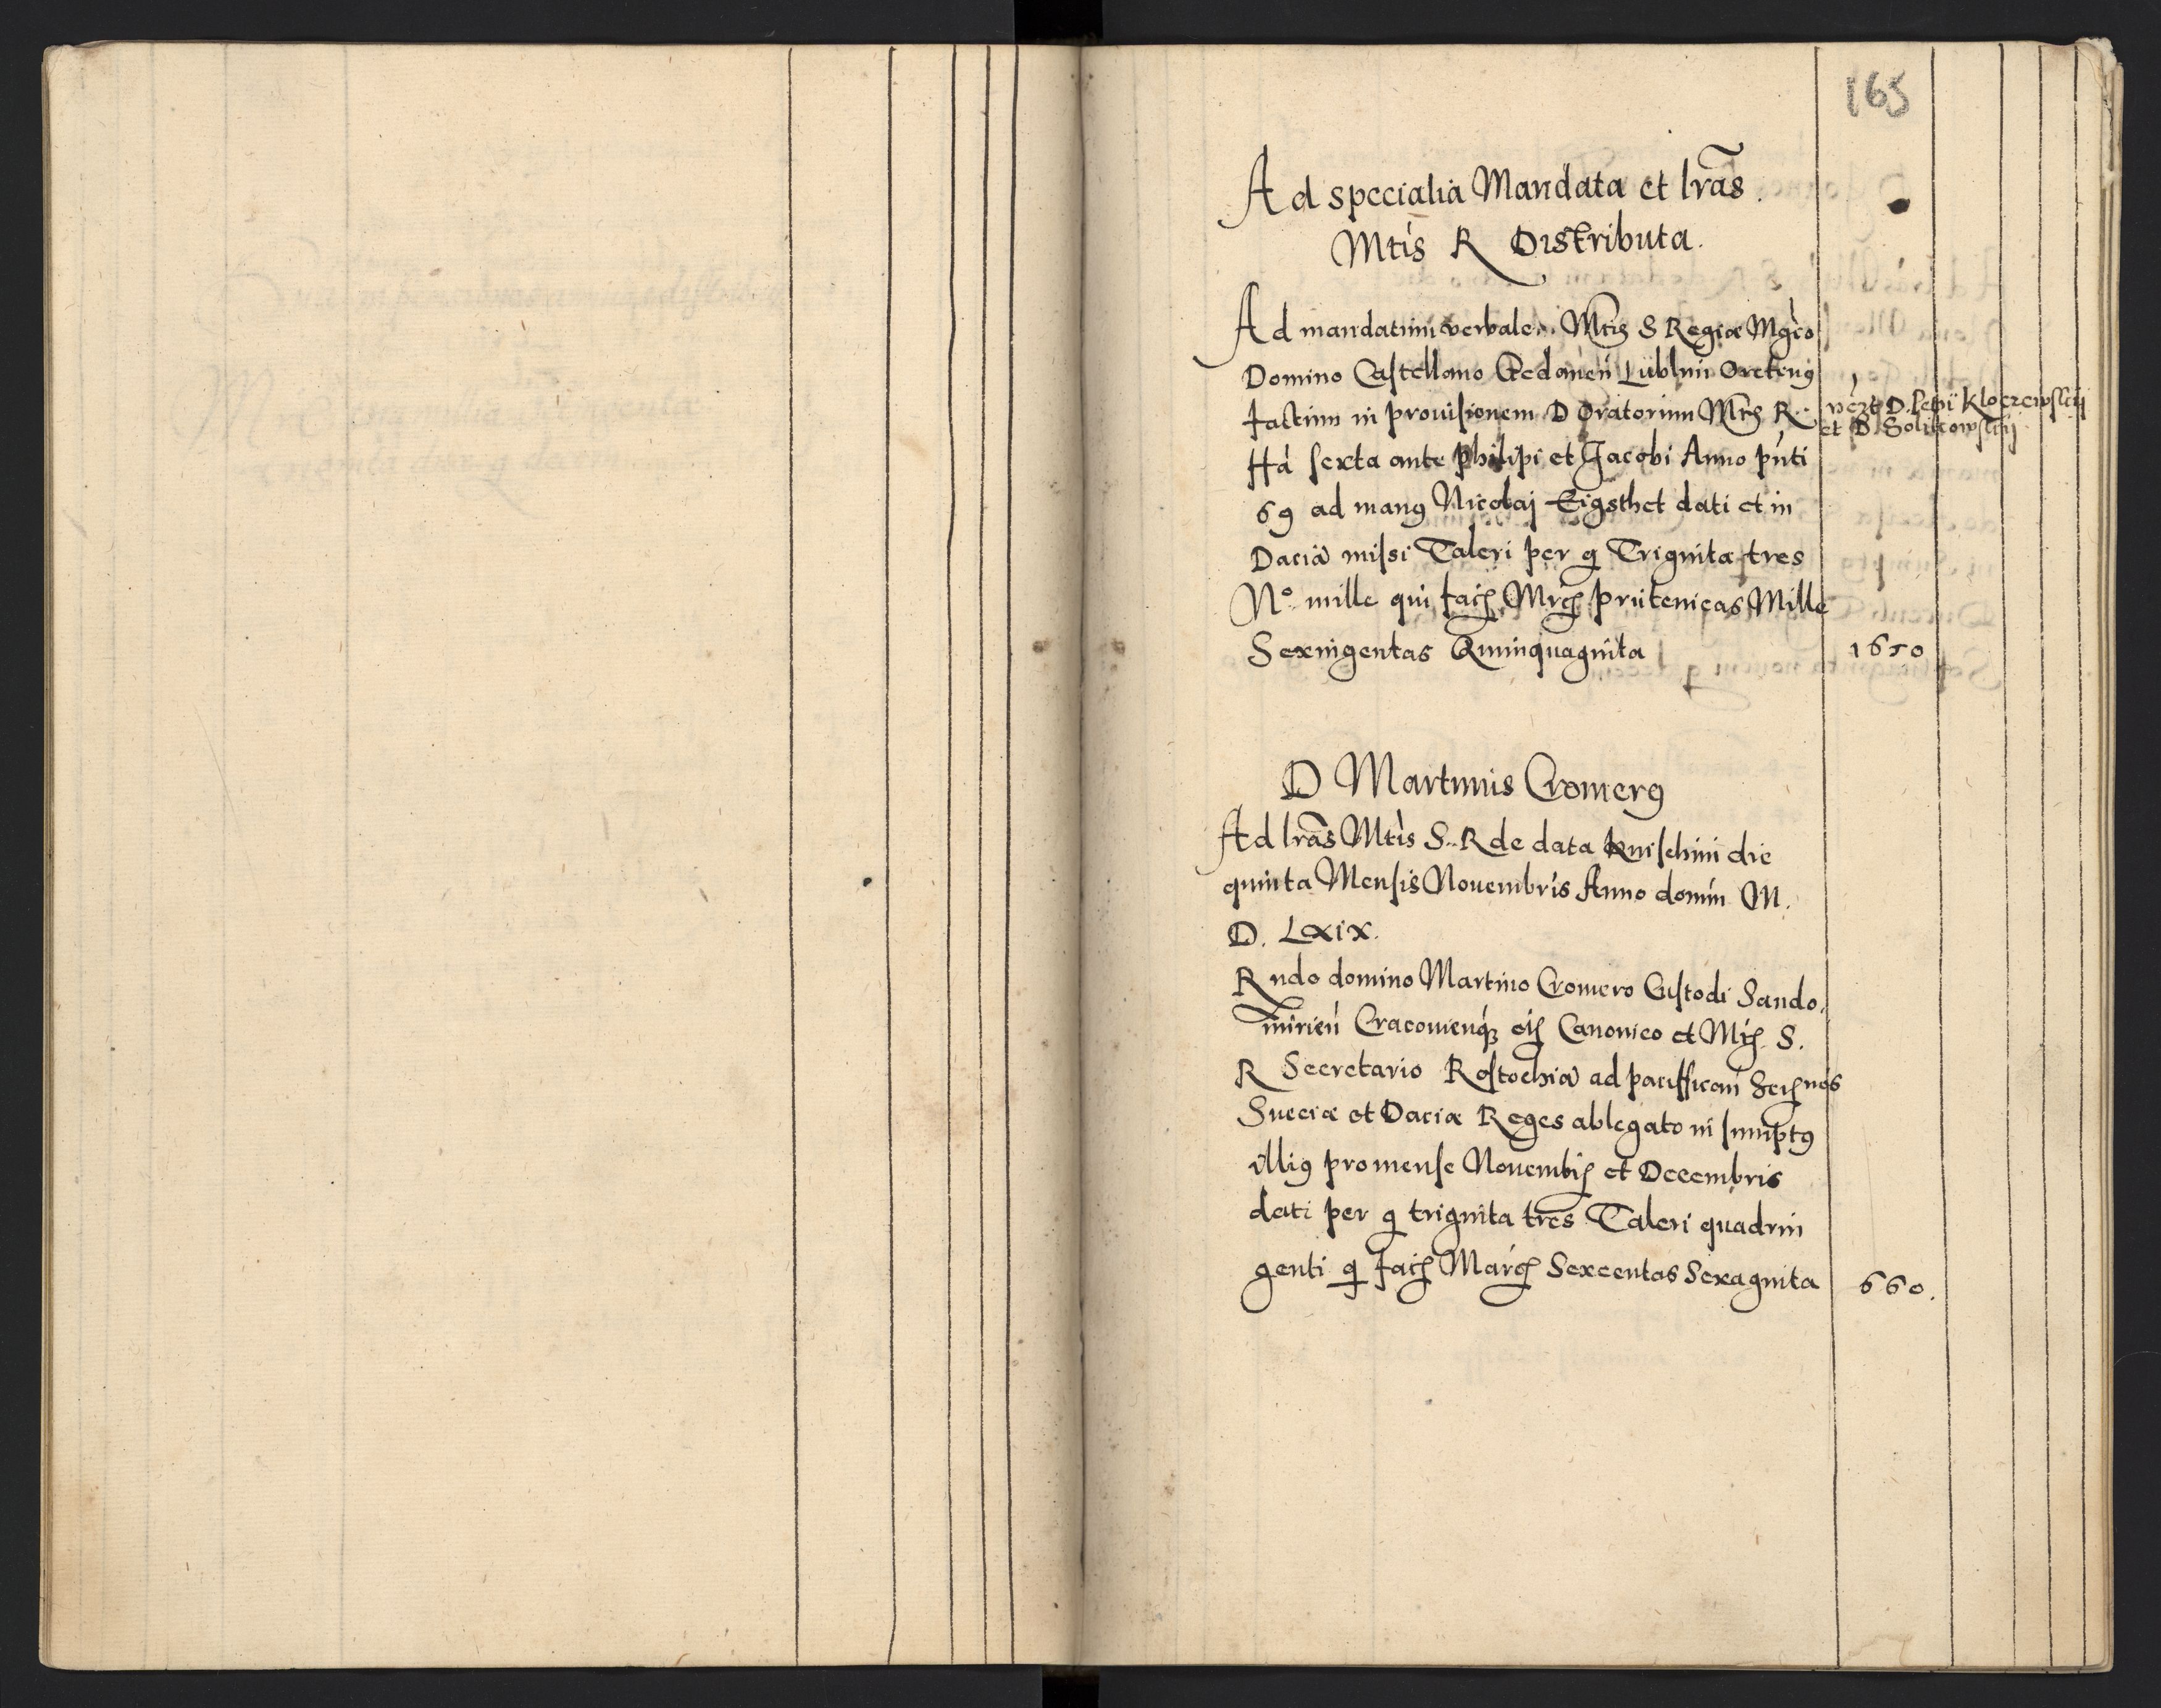 165
Ad specialia Mandata et lrãs.
Mtis R Distributa.
Ad mandatum verbale Mtis S Regiæ Mgco
Domino Castellano Gedanen Lublini Oretenus
factum in provisionem D Oratorum Mtis R
nẽpt D. Kloczewskij
et D Solikowskij
ffa sexta ante Philipi et Jacobi Anno pñti
69 ad manus Nicolaj Eigsthet dati et in
Daciã missi Taleri per g Triginta tres
No. mille qui faciũt Mrcs Prutenicas Mille
Sexingentas Quinquaginta
1650
D Martinus Cromerus
Ad lrãs Mtis S. R de data Knischini die
quinta Mensis Nouembris Anno domini M.
D. LXIX.
Rndo domino Martino Cromero Custodi Sando,
mirien Cracouienq3 eccliarum Canonico et Mtis S.
R Secretario Rostochiã ad paciffican Sermos
Sueciæ et Daciæ Reges ablegato in sumptus
illius pro mense Nouembris et Decembris
dati per g triginta tres Taleri quadrin
genti q faciũt Marcs Sexcentas Sexaginta
660.